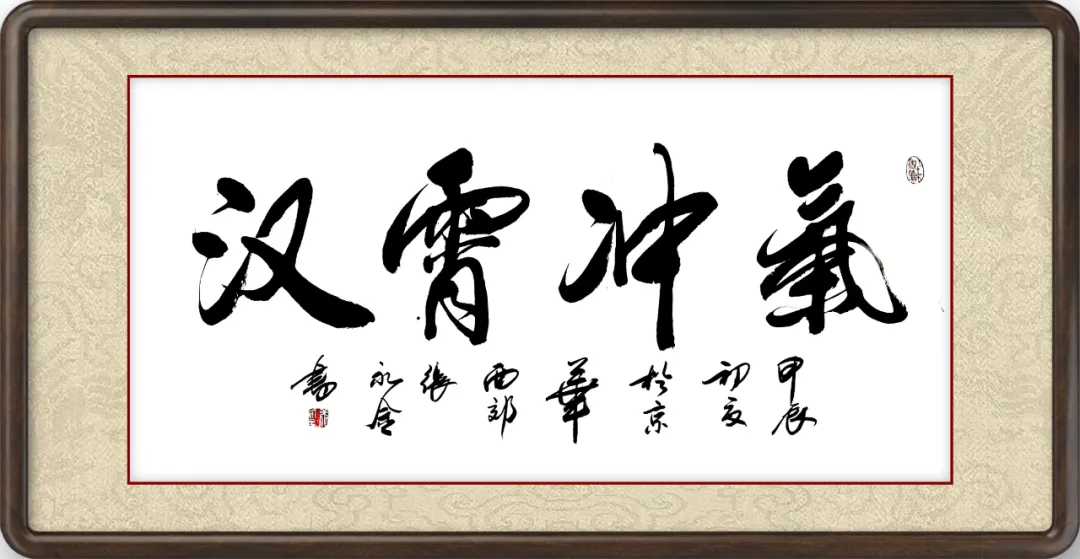 氣冲霄汉
甲辰
初夏
於京
華
西郊
張
永金
書